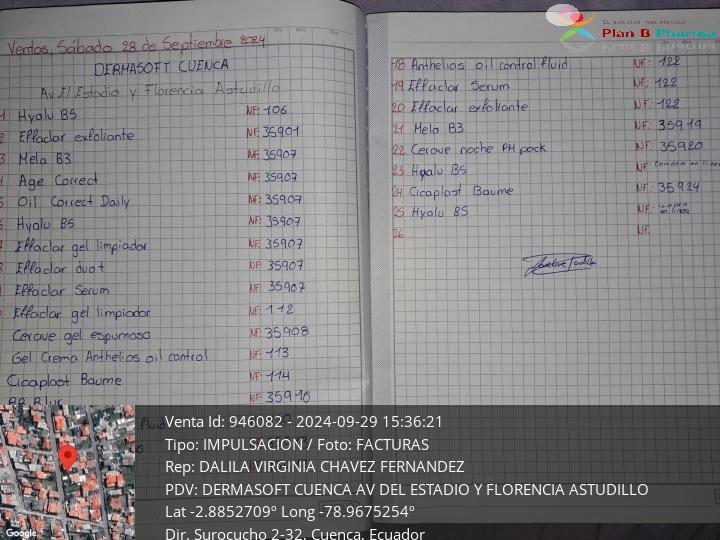 Ventas, Sábado 28 de Septiembre 2024
DERMASOFT CUENCA
Av El Estadio y Florencia Astudillo
1 Hyalu B5 NF: 106
2 Effaclar exfoliante NF: 35901
3 Mela B3 NF: 35907
Age Correct NF: 35907
5 Oil Correct Daily NF: 35907
Hyalu B5 NF: 35907
Effaclar gel limpiador NF: 35907
Effaclar duo+ NF: 35907
Effaclar Serum NF: 35907
Effaclar gel limpiador NF: 112
Cerave gel espumoso NF: 35908
Gel Crema Anthelios oil control NF: 113
Cicaplast Baume NF: 114
BB Blur NF: 35910
fluid
18 Anthelios oil control fluid NF: 122
19 Effaclar Serum NF: 122
20 Effaclar exfoliante NF: 122
21 Mela B3 NF: 35919
22 Cerave noche PM pack NF: 35920
23 Hyalu B5 NF: compra en linea
24 Cicaplast Baume NF: 35924
25 Hyalu B5 NF: compra en linea
26 NF:
Su solución más efectiva!
Plan B Pharma
Venta Id: 946082 - 2024-09-29 15:36:21
Tipo: IMPULSACION / Foto: FACTURAS
Rep: DALILA VIRGINIA CHAVEZ FERNANDEZ
PDV: DERMASOFT CUENCA AV DEL ESTADIO Y FLORENCIA ASTUDILLO
Lat -2.8852709º Long -78.9675254º
Dir. Surocucho 2-32, Cuenca, Ecuador
Google